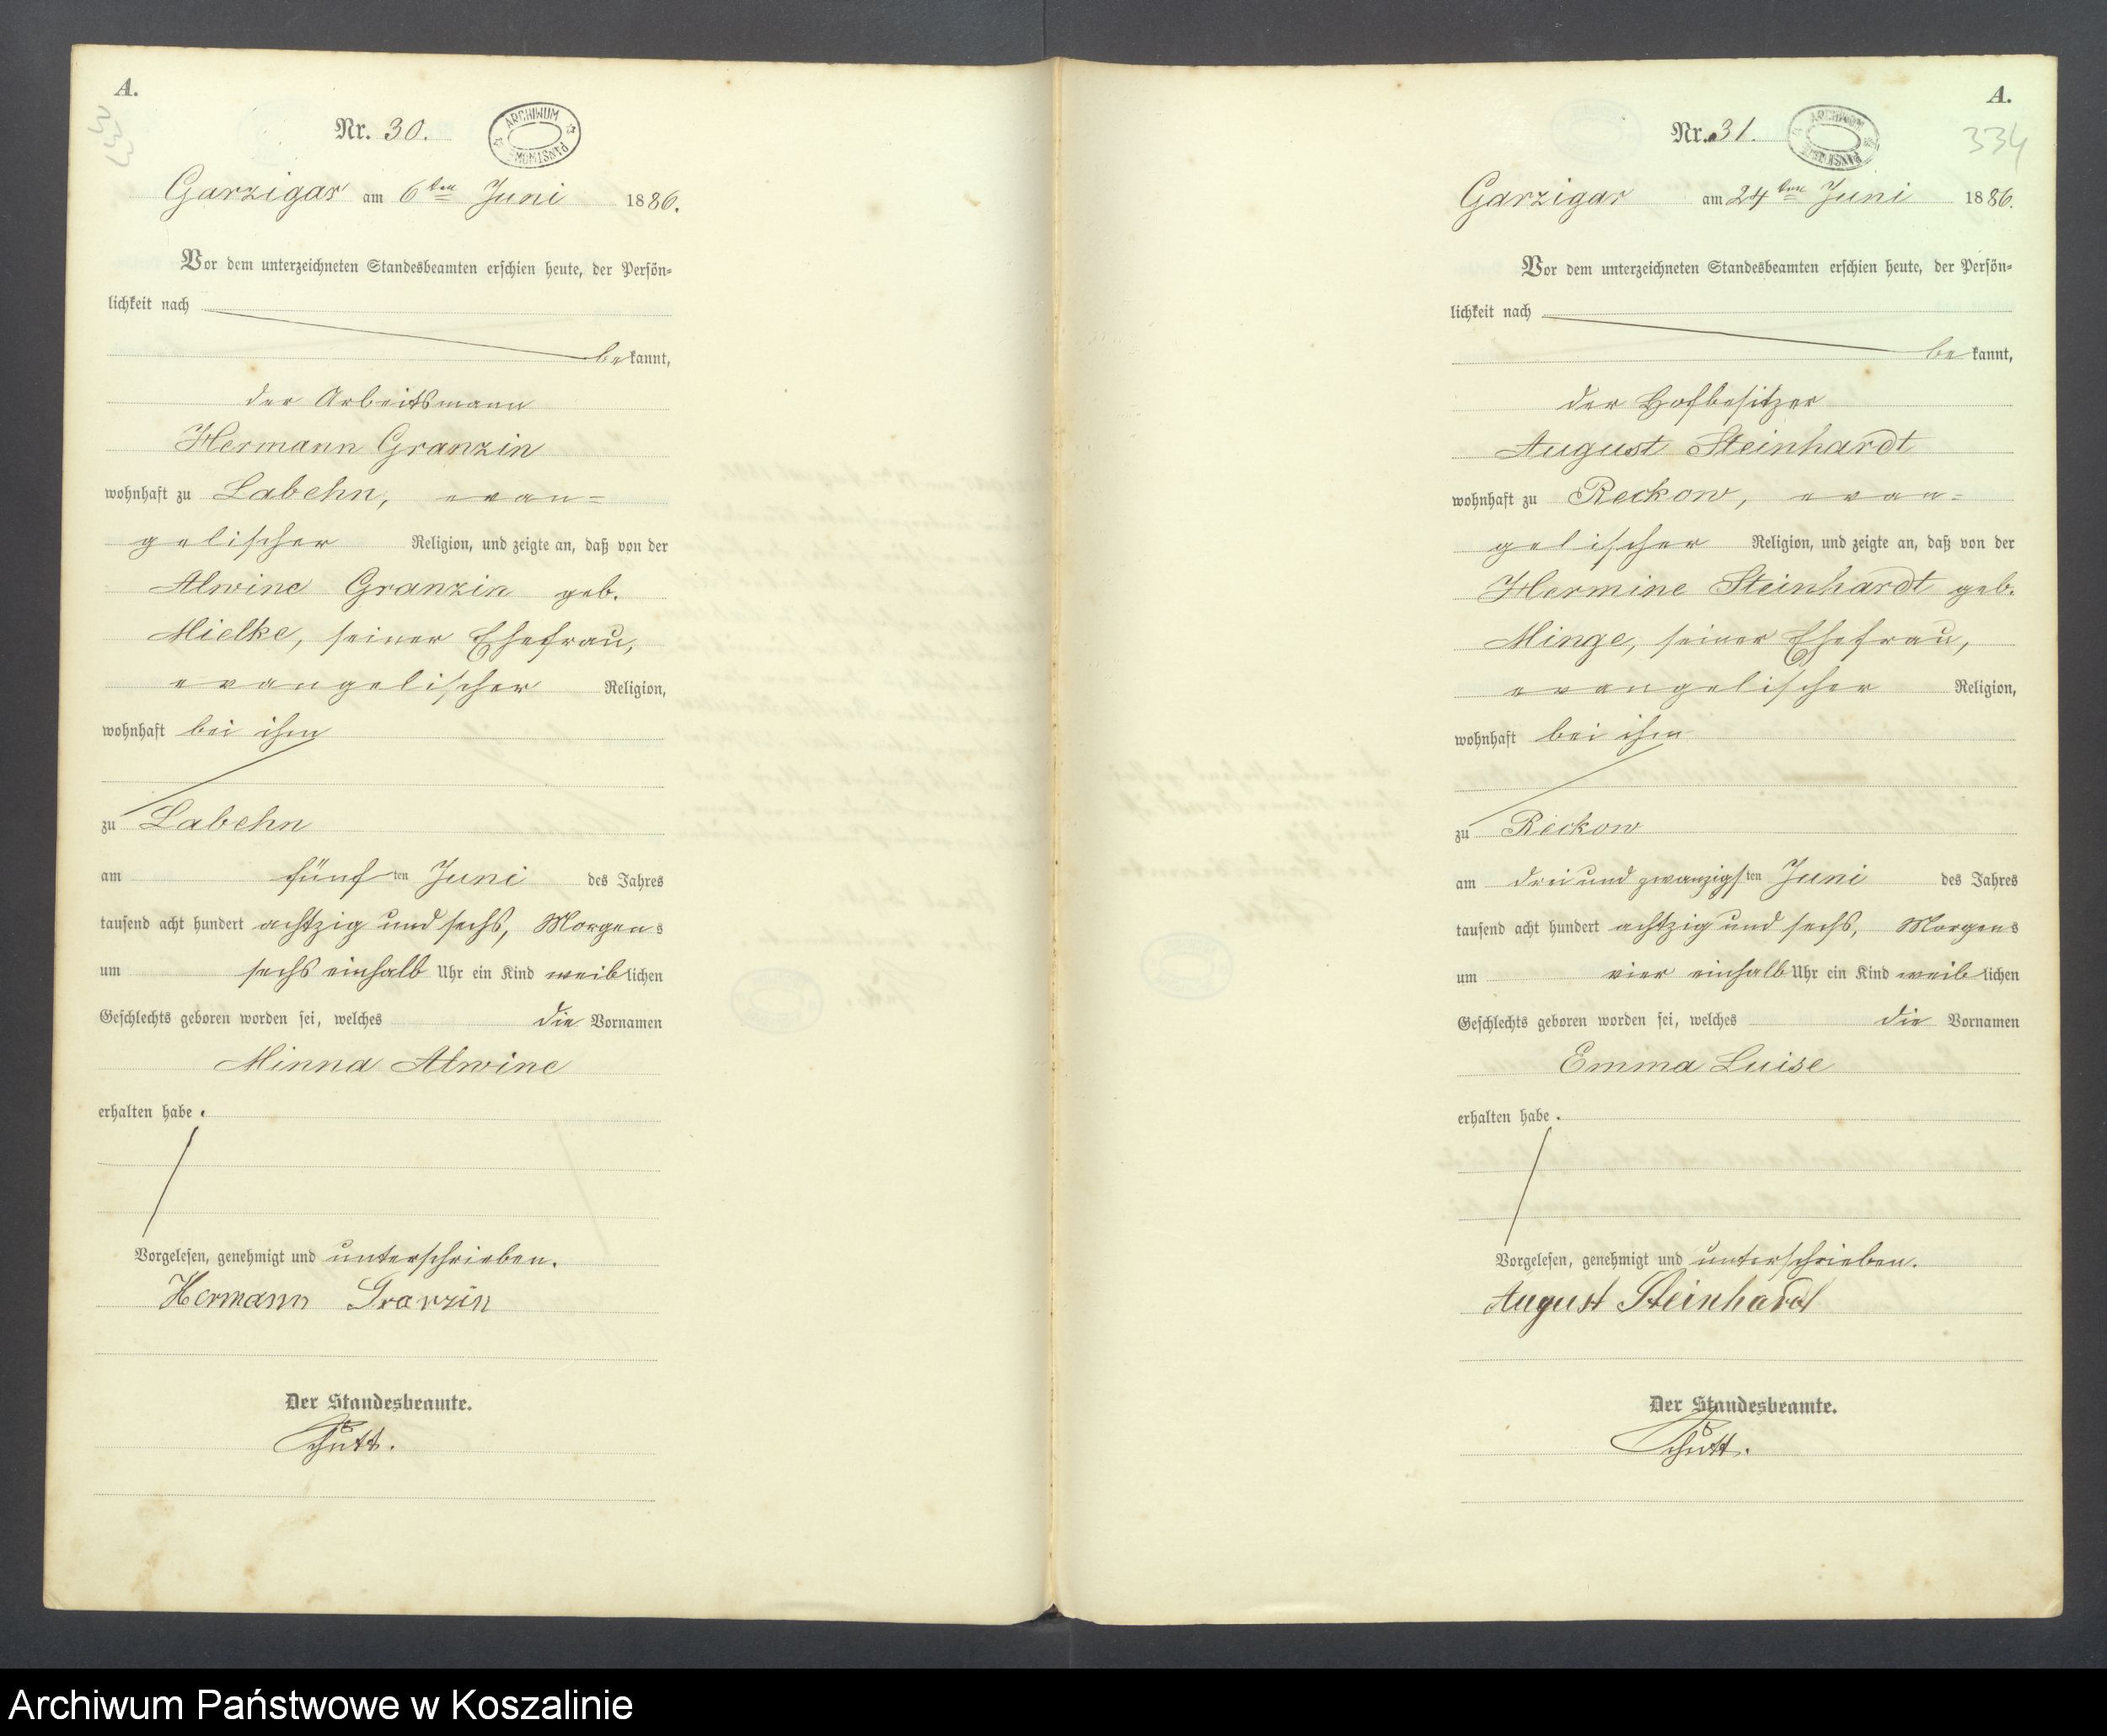 A.
333
Nr. 30.
ARCHIWUM PAŃSTWOWE
Garzigar am 6ten Juni 1886.
Vor dem unterzeichneten Standesbeamten erschien heute, der Persön=
lichkeit nach
bekannt,
der Arbeitsmann
Hermann Granzin
wohnhaft zu Labehn, evan=
gelischer Religion, und zeigte an, daß von der
Alwine Granzin geb.
Mielke, seiner Ehefrau,
evangelischer Religion,
wohnhaft bei ihm
zu Labehn
am fünften Juni des Jahres
tausend acht hundert achtzig und sechs, Morgens
um sechs einhalb Uhr ein Kind weiblichen
Geschlechts geboren worden sei, welches die Vornamen
Minna Alwine
erhalten habe.
Vorgelesen, genehmigt und unterschrieben.
Hermann Granzin
Der Standesbeamte.
Schütt.
A.
334
Nr. 31.
ARCHIWUM PAŃSTWOWE
Garzigar am 24ten Juni 1886.
Vor dem unterzeichneten Standesbeamten erschien heute, der Persön=
lichkeit nach
bekannt,
der Hofbesitzer
August Steinhardt
wohnhaft zu Reckow, evan=
gelischer Religion, und zeigte an, daß von der
Hermine Steinhardt geb.
Minge, seiner Ehefrau,
evangelischer Religion,
wohnhaft bei ihm
zu Reckow
am drei und zwanzigsten Juni des Jahres
tausend acht hundert achtzig und sechs, Morgens
um vier einhalb Uhr ein Kind weiblichen
Geschlechts geboren worden sei, welches die Vornamen
Emma Luise
erhalten habe.
Vorgelesen, genehmigt und unterschrieben.
August Steinhardt
Der Standesbeamte.
Schütt.
Archiwum Państwowe w Koszalinie